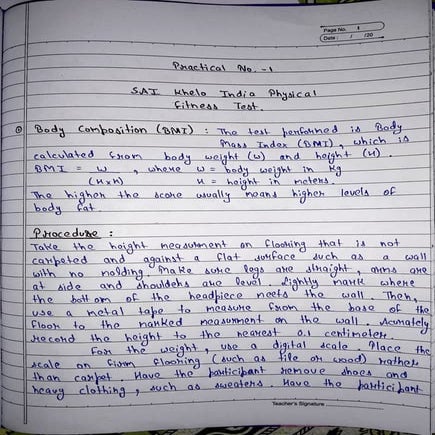 Page No. 1
Date: / /20
Practical No. -1
SAI Khelo India Physical
Fitness Test.
Body Composition (BMI) : The test performed is Body
Mass Index (BMI), which is
calculated from body weight (W) and height (H).
BMI = W , where W = body weight in Kg
(HxH) H = height in meters.
The higher the score usually means higher levels of
body fat.
Procedure :
Take the height measurment on flooring that is not
carpeted and against a flat surface such as a wall
with no molding. Make sure legs are straight, arms are
at side and shoulders are level. Lightly mark where
the bottom of the headpiece meets the wall. Then,
use a metal tape to measure from the base of the
floor to the marked measurment on the wall. Acurately
record the height to the nearest 0.1 centimeter.
For the weight, use a digital scale. Place the
scale on firm flooring (such as tile or wood) rather
than carpet. Have the participant remove shoes and
heavy clothing, such as sweaters. Have the participant
Teacher's Signature